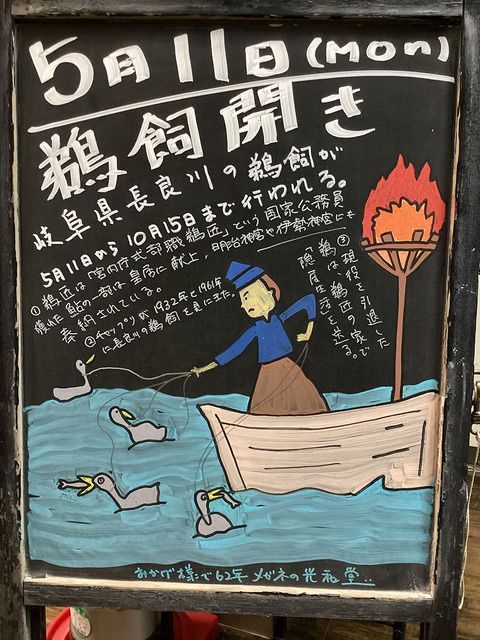 5月11日(Mon)
鵜飼開き
岐阜県長良川の鵜飼が
5月11日から10月15日まで行われる。
①鵜匠は「宮内庁式部職鵜匠」という国家公務員
獲れた鮎の一部は皇居に献上、明治神宮や伊勢神宮にも
奉納されている。
②チャップリンが1932年と1961年
に長良川の鵜飼を見にきた。
③現役を引退した
鵜は、鵜匠の家で
「隠居生活」を送る。
おかげ様で62年 メガネの光和堂..